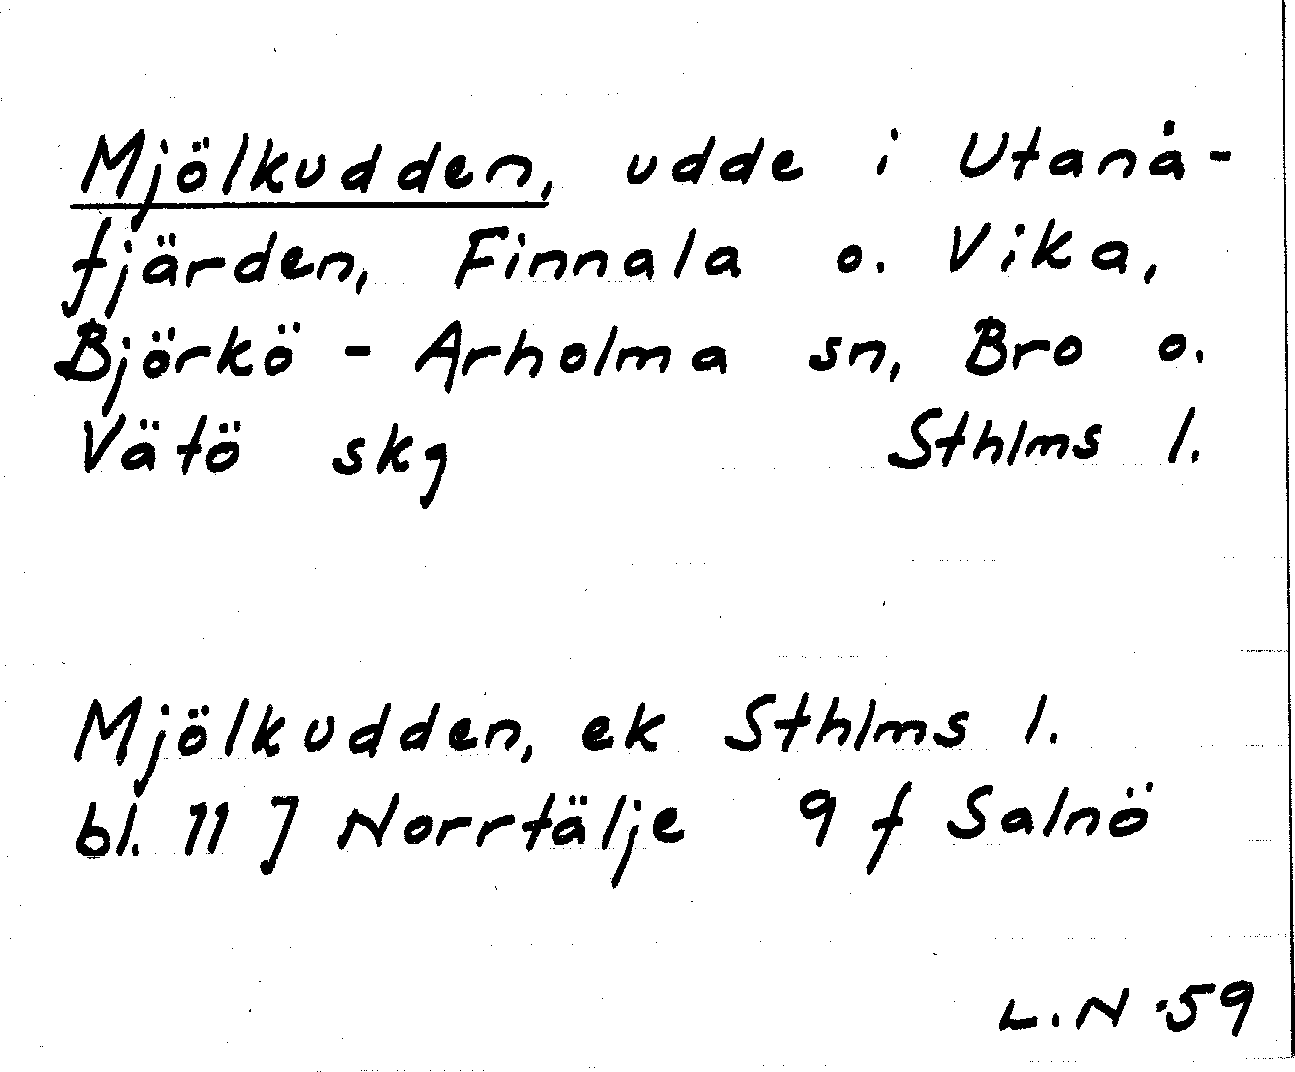 Mjölkudden, udde i Utanå-
fjärden, Finnala o. Vika,
Björkö - Arholma sn, Bro o.
Vätö skg Sthlms l.
Mjölkudden, ek Sthlms l.
bl. 11 J Norrtälje 9 f Salnö
L.N. 59